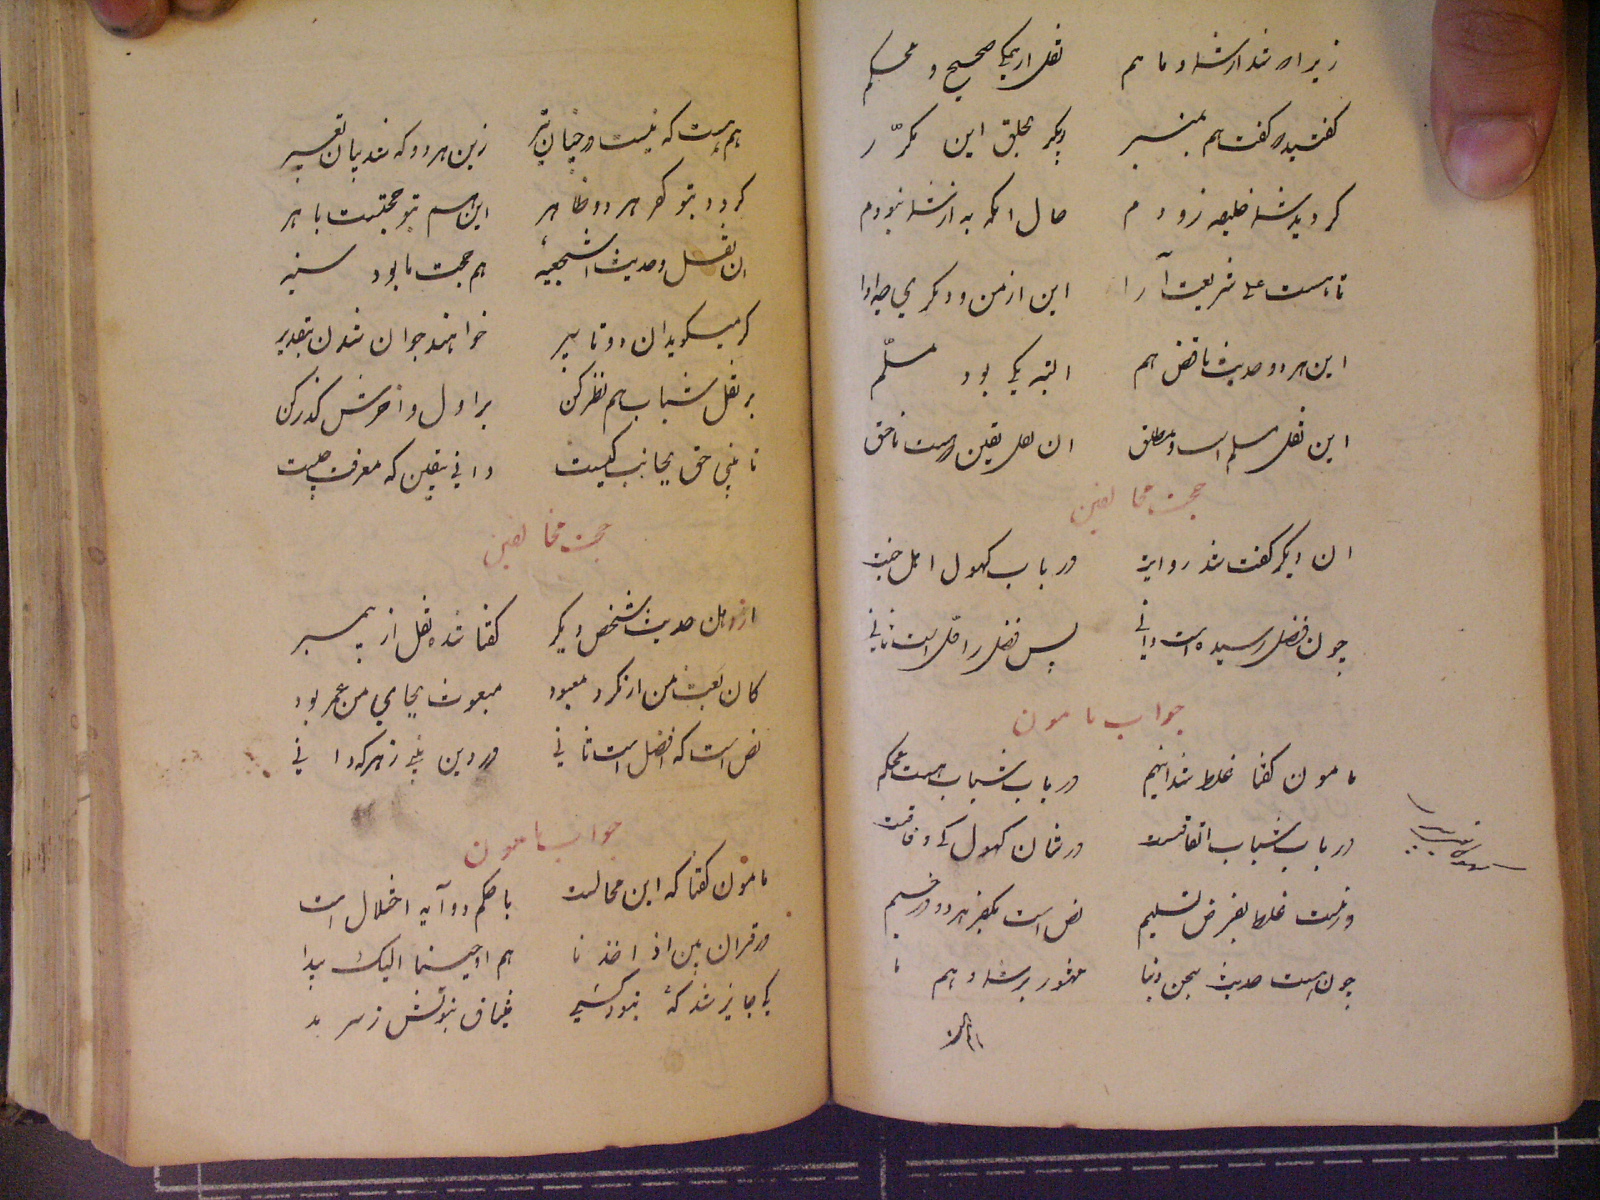 زیرا که شد از شما و ما هم نقل از یکی صحیح و محکم
گفتید که گفت هم بمنبر دیگر بخلق این مکرّر
گردید شما خلیفه زودم حال آنکه به از شما نبودم
تا هست علی شریعت آرا این از من و دیگری چه او را
این هر دو حدیث ناقض هم البته یکی بود مسلّم
این نقل مسلم است و مطلق آن نقل یقین که هست ناحق
حجت مخالفین
آن دیگر گفت شد روایت در باب کهول اهل جنت
چون فضل رسیده است دانی پس فضل را قل است ثانی
جواب مامون
مامون گفتا غلط شد اینهم در باب شباب هست محکم
در باب شباب اتفاقست در شان کهول کی وفاقست
ور نیست غلط بفرض تسلیم نص است بکفر هر دو در خیم
چون هست حدیث سجن دنیا مشهور بر شما و هم ما
هم هست که نیست در جنان پیر زین هر دو که شد بیان تفسیر
گردد بتو کفر هر دو ظاهر این هم بتو حجتیست باهر
آن نقل و حدیث اشجعیه هم حجت ما بود سنیه
گر میگوید آن دو تا پیر خواهند جوان شدن بتقدیر
بر نقل شباب هم نظر کن بر اول و آخرش گذر کن
تا بینی حق بجانب کیست دانی بیقین که معرفت چیست
حجت مخالفین
از اهل حدیث شخص دیگر گفتا شده نقل از پیمبر
کان بعث من ار نکرد معبود مبعوث بجای من عمر بود
نص است که افضل است ثانی در دین نبی ز هر که دانی
جواب مامون
مامون گفتا که این محالست با حکم دو آیه اختلال است
در قران بین اذ اخذنا هم اوحینا الیک پیدا
کی جایز شد که نبود کسی میثاق نبوتش ز سرمد